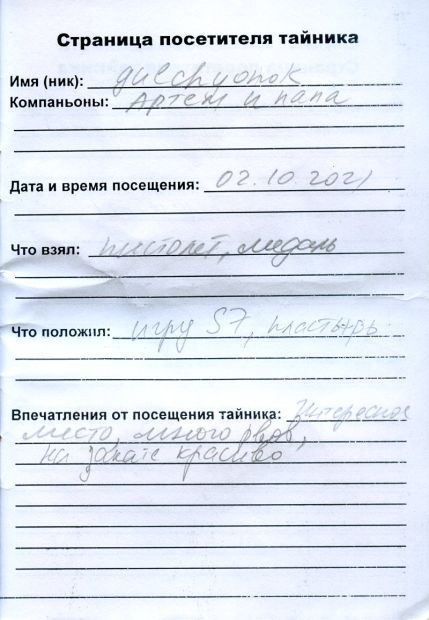 Страница посетителя тайника
Имя (ник):
Компаньоны: Артем и папа
Дата и время посещения: 02.10.2021
Что взял: пистолет, медаль
Что положил: игру S7, пластырь
Впечатления от посещения тайника: Интересное
место, много рвов,
на закате красиво